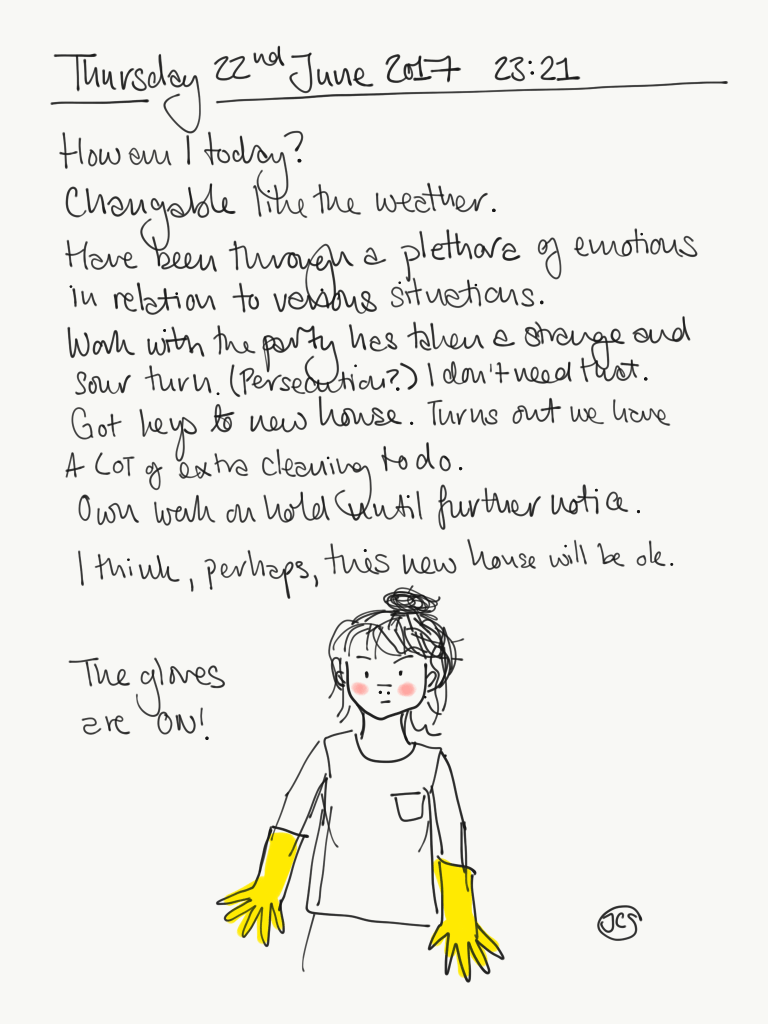 Thursday 22nd June 2017 23:21
How am I today?
Changable like the weather.
Have been through a plethora of emotions
in relation to various situations.
Work with the party has taken a strange and
sour turn. (Persecution?) I don't need that.
Got keys to new house. Turns out we have
A LOT of extra cleaning to do.
Own work on hold until further notice.
I think, perhaps, this new house will be ok.
The gloves
are ON!
JCS